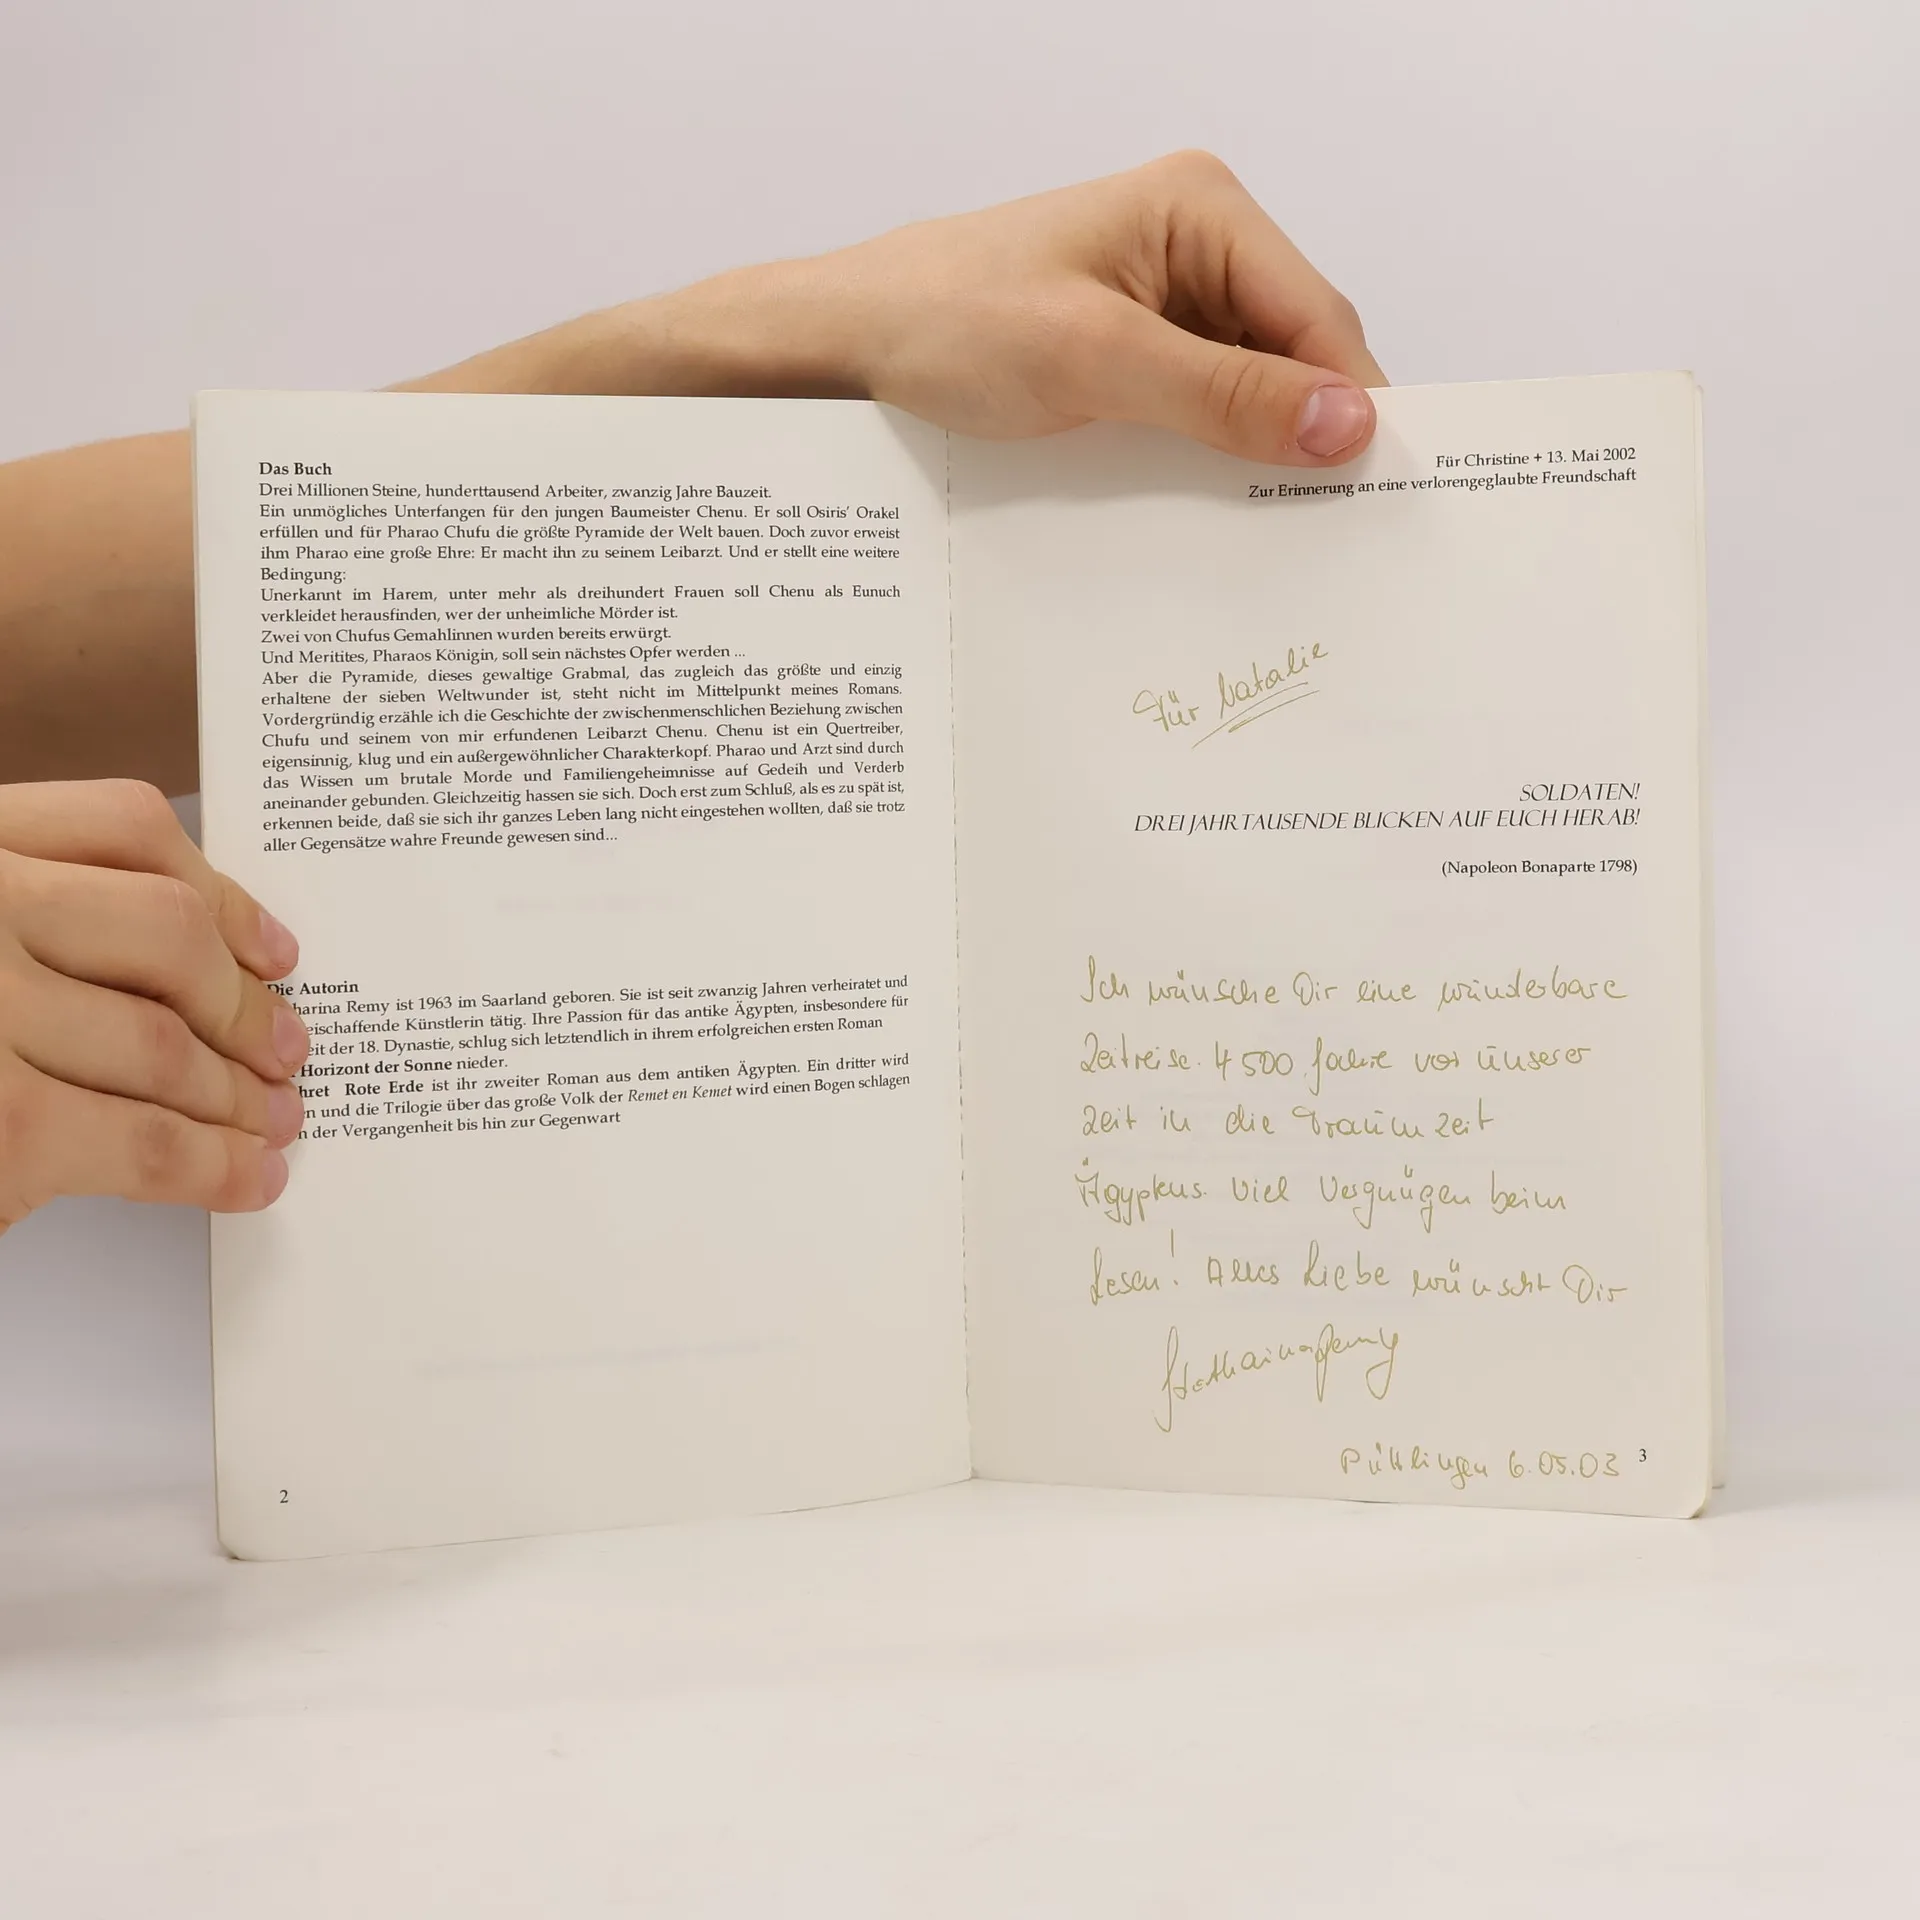 Das Buch
Drei Millionen Steine, hunderttausend Arbeiter, zwanzig Jahre Bauzeit.
Ein unmögliches Unterfangen für den jungen Baumeister Chenu. Er soll Osiris' Orakel
erfüllen und für Pharao Chufu die größte Pyramide der Welt bauen. Doch zuvor erweist
ihm Pharao eine große Ehre: Er macht ihn zu seinem Leibarzt. Und er stellt eine weitere
Bedingung:
Unerkannt im Harem, unter mehr als dreihundert Frauen soll Chenu als Eunuch
verkleidet herausfinden, wer der unheimliche Mörder ist.
Zwei von Chufus Gemahlinnen wurden bereits erwürgt.
Und Meritites, Pharaos Königin, soll sein nächstes Opfer werden ...
Aber die Pyramide, dieses gewaltige Grabmal, das zugleich das größte und einzig
erhaltene der sieben Weltwunder ist, steht nicht im Mittelpunkt meines Romans.
Vordergründig erzähle ich die Geschichte der zwischenmenschlichen Beziehung zwischen
Chufu und seinem von mir erfundenen Leibarzt Chenu. Chenu ist ein Quertreiber,
eigensinnig, klug und ein außergewöhnlicher Charakterkopf. Pharao und Arzt sind durch
das Wissen um brutale Morde und Familiengeheimnisse auf Gedeih und Verderb
aneinander gebunden. Gleichzeitig hassen sie sich. Doch erst zum Schluß, als es zu spät ist,
erkennen beide, daß sie sich ihr ganzes Leben lang nicht eingestehen wollten, daß sie trotz
aller Gegensätze wahre Freunde gewesen sind...
Die Autorin
harina Remy ist 1963 im Saarland geboren. Sie ist seit zwanzig Jahren verheiratet und
eischaffende Künstlerin tätig. Ihre Passion für das antike Ägypten, insbesondere für
eit der 18. Dynastie, schlug sich letztendlich in ihrem erfolgreichen ersten Roman
Horizont der Sonne nieder.
hret Rote Erde ist ihr zweiter Roman aus dem antiken Ägypten. Ein dritter wird
n und die Trilogie über das große Volk der Remet en Kemet wird einen Bogen schlagen
n der Vergangenheit bis hin zur Gegenwart
2
Für Christine + 13. Mai 2002
Zur Erinnerung an eine verlorengeglaubte Freundschaft
Für Natalie
SOLDATEN!
DREI JAHRTAUSENDE BLICKEN AUF EUCH HERAB!
(Napoleon Bonaparte 1798)
Ich wünsche Dir eine wunderbare
Zeitreise. 4500 Jahre vor unserer
Zeit in die Traumzeit
Ägyptens. Viel Vergnügen beim
Lesen! Alles Liebe wünscht Dir
Katharina Remy
Püttlingen 6.05.03
3